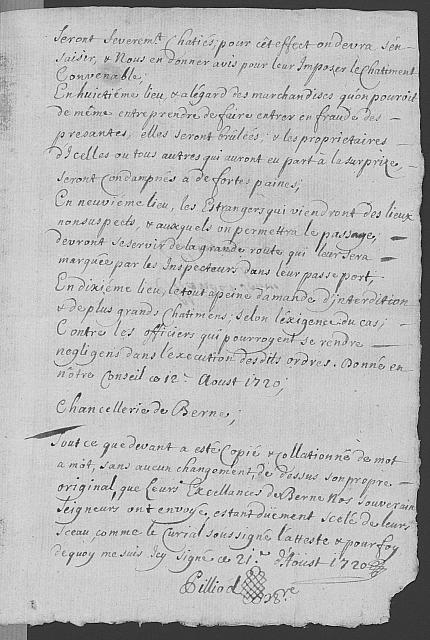 Seront Severemt Chatiés; pour cét effect on devra S'en=
saisir, & Nous en donner avis pour leur Imposer le Chatiment
Convenable;
En huitiéme lieu, & a légard des marchandises qu'on pourroit
de même entreprendre de faire entrer en fraude des =
presantes, elles seront brûlées; & les proprietaires
d'Icelles ou tous autres qui auront eu part à la surprize,
seront Condampnés a de fortes paines;
En neuviéme lieu, les Estrangers qui viendront des lieux
non suspects, & auxquels on permettra le passage,
devront se servir de la grande route qui leur sera
marquée par les Inspecteurs dans leur passeport,
En dixiéme lieu, le tout a peine damande d'interdition
& de plus grands Chatimens; selon l'éxigence du cas;
Contre les officiers qui pourroyent se rendre
negligens dans l'execution desdits ordres. Donné en
nôtre Conseil ce 12e Aoust 1720;
Chancellerie de Berne;
Tout ce que devant a esté Copié & collationné de mot
a môt, sans aucun changement de dessus son propre
original, que Leurs Excellances de Berne Nos souverain
Seigneurs ont envoyé, estant düement scelé de leurs
Sceau, comme le Curial soussigné l'atteste & pour foy
dequoy me suis Icy signé ce 21e d'Aoust 1720
Pilliod